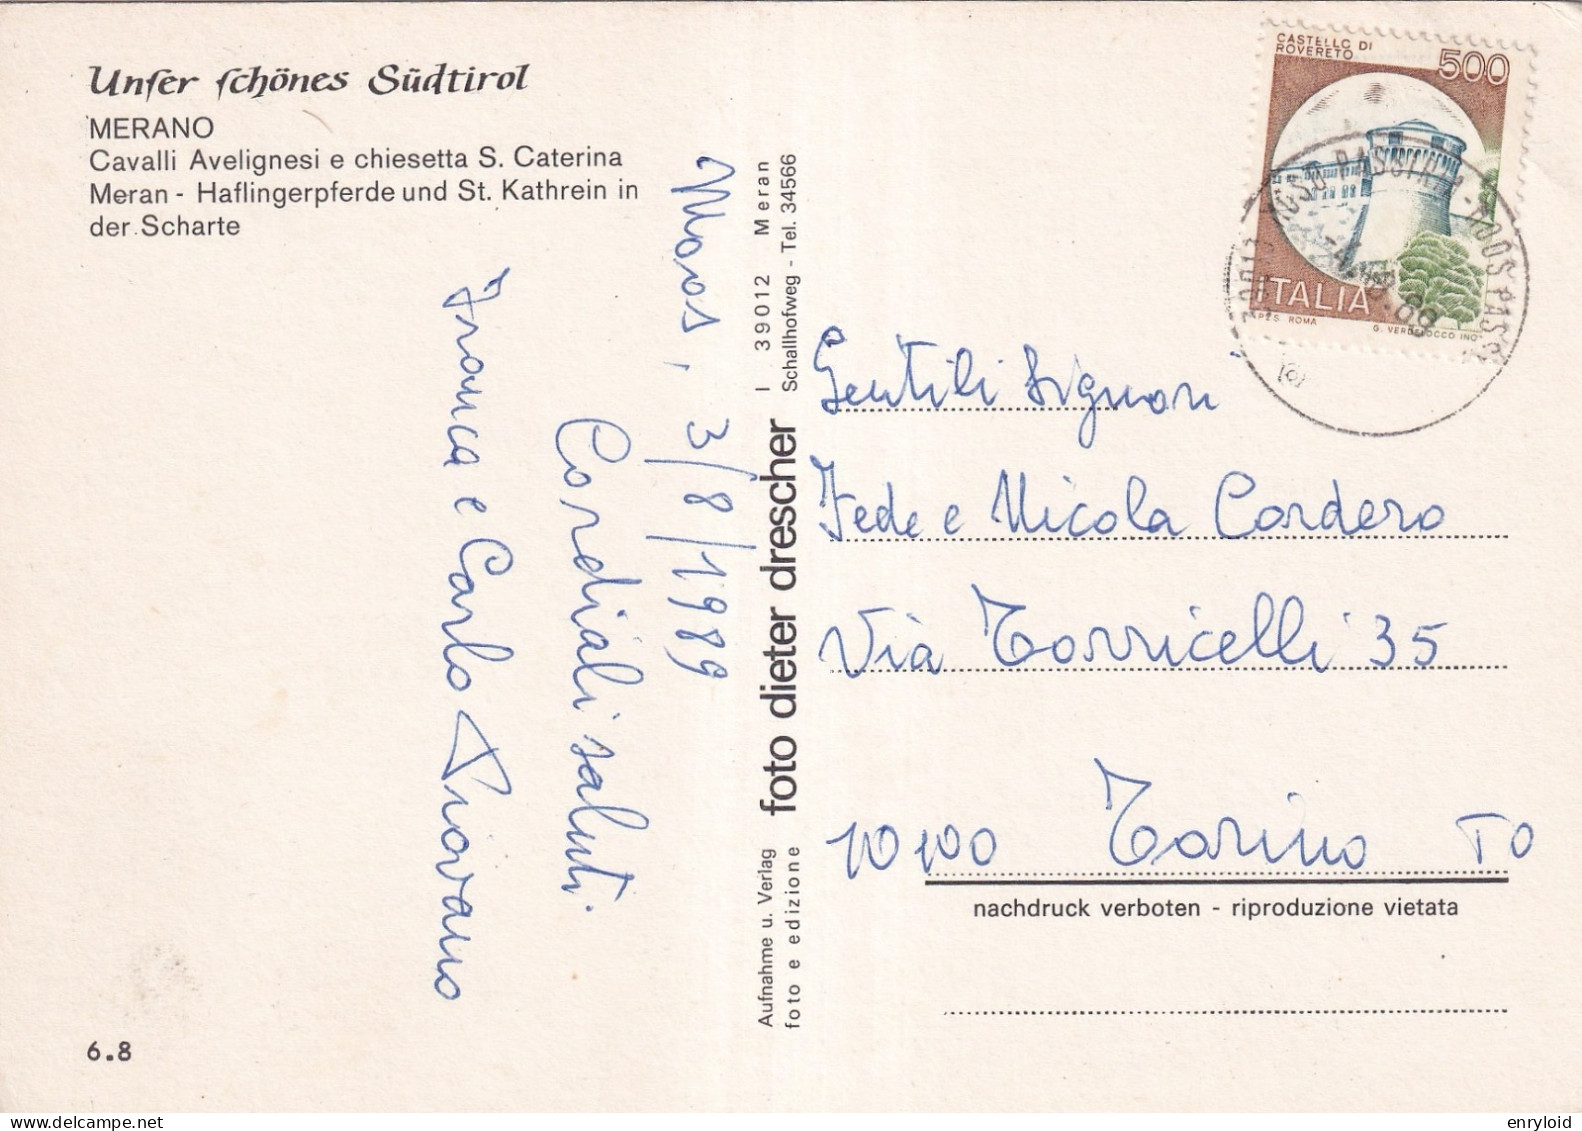 Unser schönes Südtirol
MERANO
Cavalli Avelignesi e chiesetta S. Caterina
Meran - Haflingerpferde und St. Kathrein in
der Scharte
Moos, 3/8/1989
Cordiali saluti
Franca e Carlo
6.8
Aufnahme u. Verlag
foto e edizione
foto dieter drescher
I 39012 Meran
Schallhofweg - Tel. 34566
CASTELLO DI
ROVERETO
500
ITALIA
I.P.Z.S. ROMA
Gentili Signori
Fede e Nicola Cordero
Via Torricelli 35
10100 Torino TO
nachdruck verboten - riproduzione vietata
enryloid